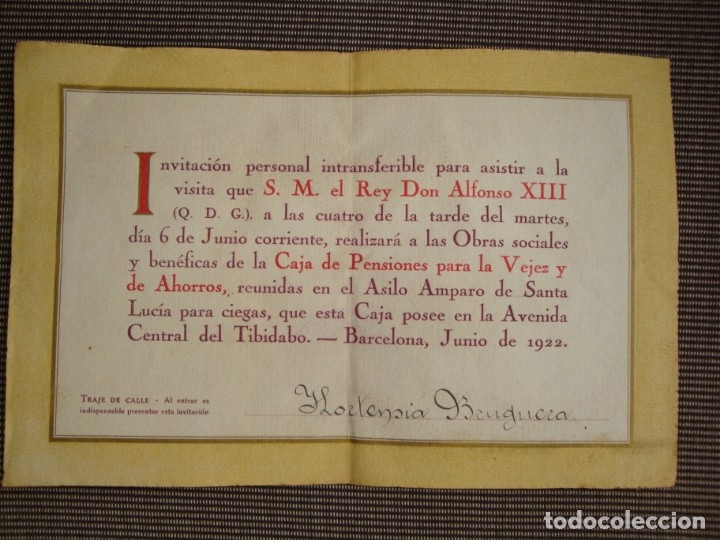 Invitación personal intransferible para asistir a la
visita que S. M. el Rey Don Alfonso XIII
(Q. D. G.), a las cuatro de la tarde del martes,
día 6 de Junio corriente, realizará a las Obras sociales
y benéficas de la Caja de Pensiones para la Vejez y
de Ahorros, reunidas en el Asilo Amparo de Santa
Lucía para ciegas, que esta Caja posee en la Avenida
Central del Tibidabo. — Barcelona, Junio de 1922.
TRAJE DE CALLE - Al entrar es
indispensable presentar esta invitación
Hortensia Bruguera
todocoleccion
todocoleccion.net